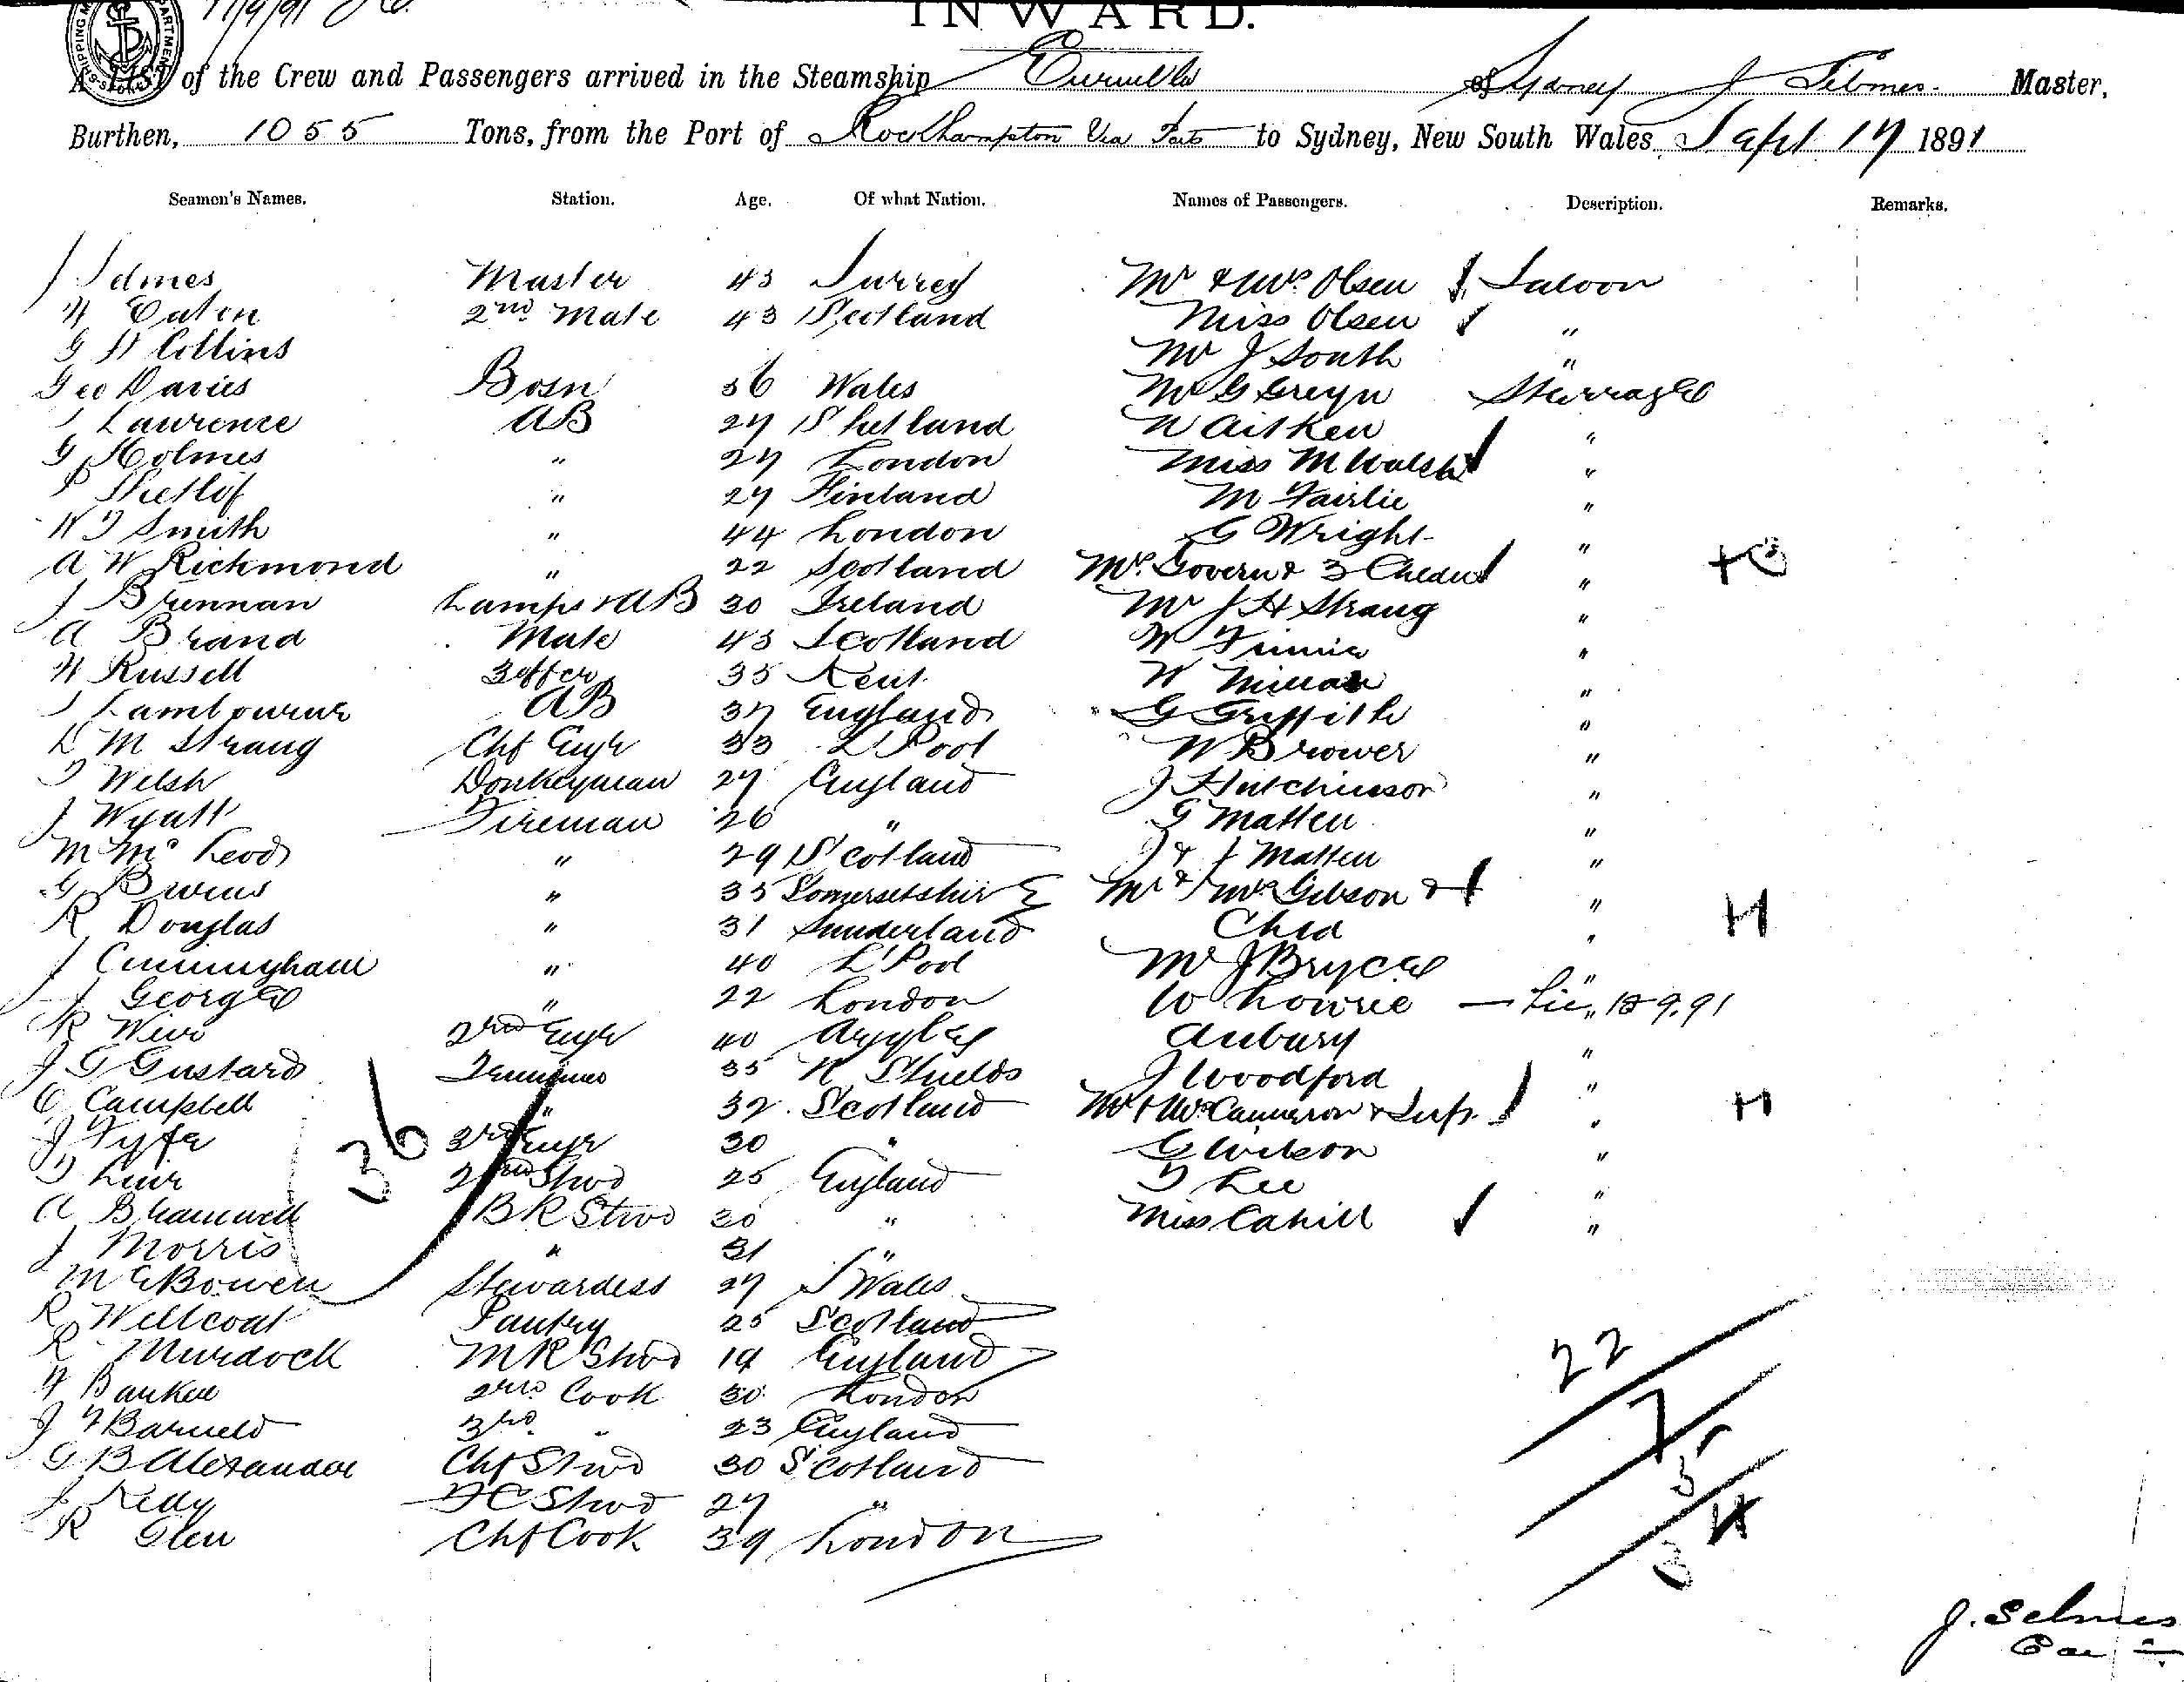 17/9/91
INWARD.
A LIST of the Crew and Passengers arrived in the Steamship Eurimbla of Sydney J Selmes Master,
Burthen, 1055 Tons, from the Port of Rockhampton Via Ports to Sydney, New South Wales, Sept 17 1891
Seamen's Names. Station. Age. Of what Nation. Names of Passengers. Description. Remarks.
J Selmes Master 43 Surrey Mr & Mrs Olsen Saloon
H Eaton 2nd Mate 43 Scotland Miss Olsen "
G H Collins Mr J South "
Geo Davies Bosn 36 Wales Mr G Greyn Steerage
J Laurence AB 27 Shetland W Aitken "
G Holmes " 27 London Miss M Walsh "
P Shetlof " 27 Finland M Fairlie "
W J Smith " 44 London G Wright "
A W Richmond " 22 Scotland Mrs Govern & 3 Children " + 3
J Brennan Lamps & AB 30 Ireland Mr J H Strang "
A Brand Mate 43 Scotland W Finnie "
H Russell 3 Offcer 35 Kent W Millar "
J Lambourne AB 37 England G Griffith "
D M Strang Chf Engr 33 L'Pool W Brower "
T Welsh Donkeyman 27 England J Hutchinson "
J Wyatt Fireman 26 " G Matten "
M McLeod " 29 Scotland J & J Matten "
G Bivens " 35 Somersetshire Mr & Mrs Gibson & "
R Douglas " 31 Sunderland Child " H
J Cunningham " 40 L'Pool Mr J Bryce "
J George " 22 London W Lowrie 18.9.91
R Weir 2nd Engr 40 Argyle Aubury "
J G Gustard Trimmer 35 N Shields J Woodford "
C Campbell " 32 Scotland Mr & Mrs Cameron & Inft. " H
J Fyfe 3rd Engr 30 " G Wilson "
T Luir 2nd Stwd 25 England T Lee "
A Bramwell BR Stwd 30 " Miss Cahill "
J Morris " 31 "
M E Bowen Stewardess 27 S Wales
R Wellcoat Pantry 25 Scotland
R Murdock MR Stwd 19 England
H Bankee 2nd Cook 30 London
J F Barneld 3rd " 23 England
G B Alexander Chf Stwd 30 Scotland
J Kelly FC Stwd 27 "
R Glen Chf Cook 39 London
36
22
7
5
34
J. Selmes